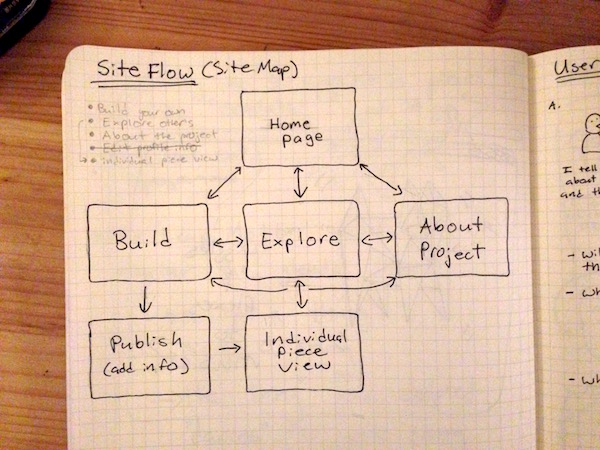 Site Flow (Site Map)
• Build your own
• Explore others
• About the project
• Edit profile info
→ • individual piece view
Home
page
Build
Explore
About
Project
Publish
(add info)
Individual
Piece
View
User
A.
I tell
about
and th
- wil
th
- wh
- wh